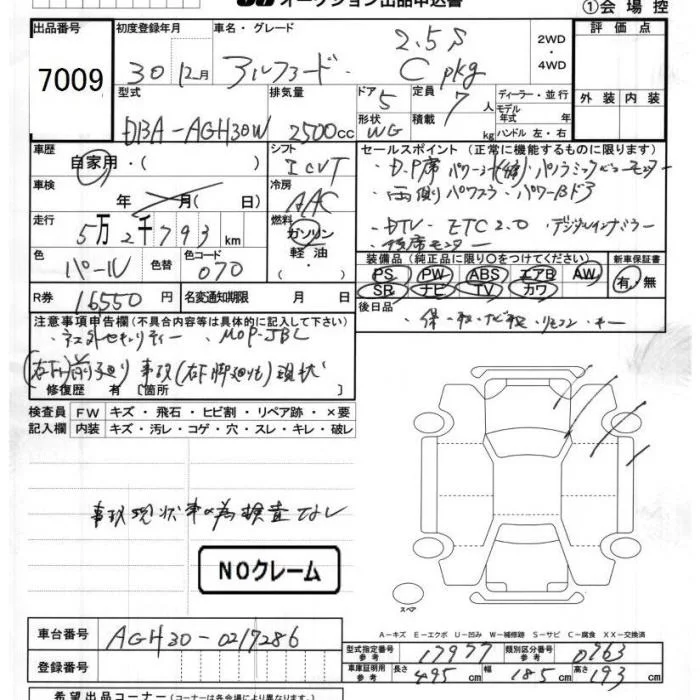 オークション出品申込書
①会場控
出品番号 初度登録年月 車名・グレード 評価点
7009 30 12月 アルファード 2.5S C pkg 2WD・4WD
外装 内装
型式 排気量 ドア 定員 ディーラー・並行
DBA-AGH30W 2500cc 5 7人 モデル年式 年
形状 WG 積載 kg ハンドル 左・右
車歴 シフト セールスポイント (正常に機能するものに限ります)
自家用・( ) ICVT ・D.P席パワーシート(付) パノラミックビューモニター
車検 冷房 ・両側パワスラ ・パワーBドア
年 月( 日) AAC
走行 燃料 ・DTV ・ETC2.0 ・デジタルインナーミラー
5万2千793km ガソリン ・後席モニター
軽油・( )
色 色替 色コード 装備品(純正品に限り○をつけてください) 新車保証書
パール 070 PS PW ABS エアB AW 有・無
SR ナビ TV カワ
R券 16550円 名変通知期限 月 日 後日品
保・取・ナビ取・リモコン・キー
注意事項申告欄(不具合内容等は具体的に記入して下さい)
・MOP-JBL
(右F)前廻り 事故(右F脚廻りも)現状
修復歴 有 [箇所 ]
検査員記入欄 FW キズ・飛石・ヒビ割・リペア跡・×要
内装 キズ・汚レ・コゲ・穴・スレ・キレ・破レ
事故現状車の為検査なし
NOクレーム
スペア
A-キズ E-エクボ U-凹み W-補修跡 S-サビ C-腐食 XX-交換済
車台番号 AGH30-0217286
型式指定番号 17977 類別区分番号 0763
登録番号
車庫証明用参考 長さ 495cm 幅 185cm 高さ 193cm
希望出品コーナー(コーナーは各会場により異なります)